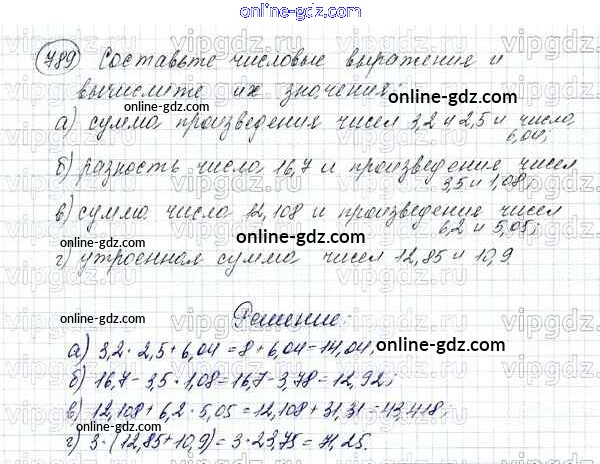 online-gdz.com
789 Составьте числовые выражения и
вычислите их значения:
online-gdz.com
а) сумма произведения чисел 3,2 и 2,5 и числа
6,04;
б) разность числа 16,7 и произведение чисел
3,5 и 1,08;
в) сумма числа 12,108 и произведение чисел
6,2 и 5,05;
online-gdz.com
г) утроенная сумма чисел 12,85 и 10,9.
Решение:
online-gdz.com
online-gdz.com
а) 3,2 · 2,5 + 6,04 = 8 + 6,04 = 14,04;
online-gdz.com
б) 16,7 - 3,5 · 1,08 = 16,7 - 3,78 = 12,92;
в) 12,108 + 6,2 · 5,05 = 12,108 + 31,31 = 43,418;
г) 3 · (12,85 + 10,9) = 3 · 23,75 = 71,25.
online-gdz.com
online-gdz.com